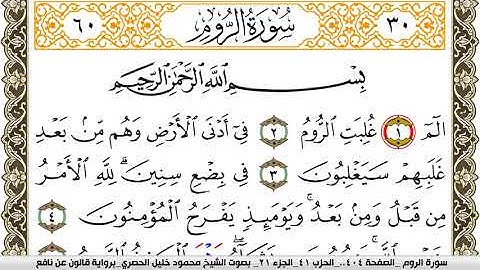 ٣٠ سُورَةُ الرُّومِ ٦٠
بِسْمِ اللَّهِ الرَّحْمَٰنِ الرَّحِيمِ
الٓمٓ ١ غُلِبَتِ الرُّومُ ٢ فِي أَدْنَى الْأَرْضِ وَهُم مِّنۢ بَعْدِ
غَلَبِهِمْ سَيَغْلِبُونَ ٣ فِي بِضْعِ سِنِينَ ۗ لِلَّهِ الْأَمْرُ
مِن قَبْلُ وَمِنۢ بَعْدُ ۚ وَيَوْمَئِذٍ يَفْرَحُ الْمُؤْمِنُونَ ٤
سورة الروم _الصفحة ٤٠٤.. الحزب ٤١_الجزء ٢١_ بصوت الشيخ محمود خليل الحصري_برواية قالون عن نافع